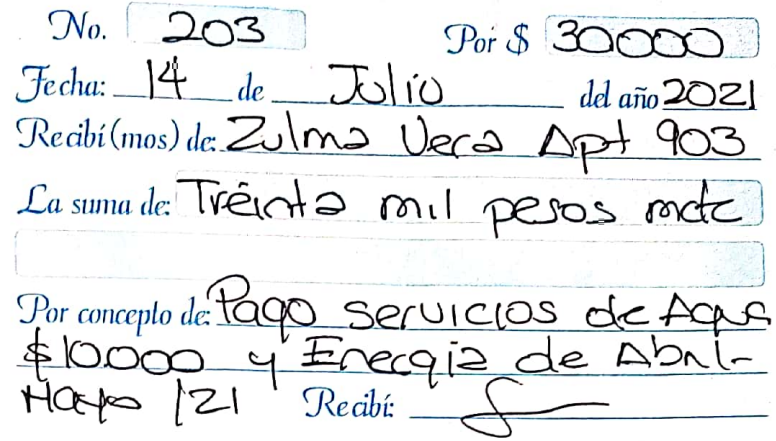 No. 203 Por $ 30000
Fecha: 14 de Julio del año 2021
Recibí(mos) de: Zulma Vera Apt 903
La suma de: Treinta mil pesos mctc
Por concepto de: Pago servicios de Agua
$10000 y Energia de Abril-
Mayo /21 Recibí: